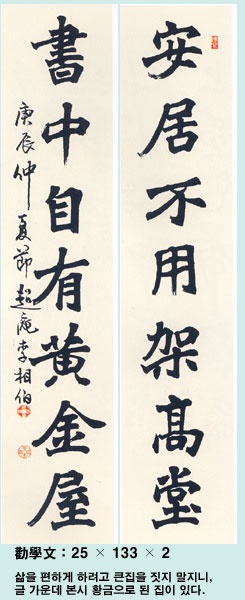 安居不用架高堂
書中自有黄金屋
庚辰仲夏節超庵李相伯
勸學文 : 25 × 133 × 2
삶을 편하게 하려고 큰집을 짓지 말지니,
글 가운데 본시 황금으로 된 집이 있다.